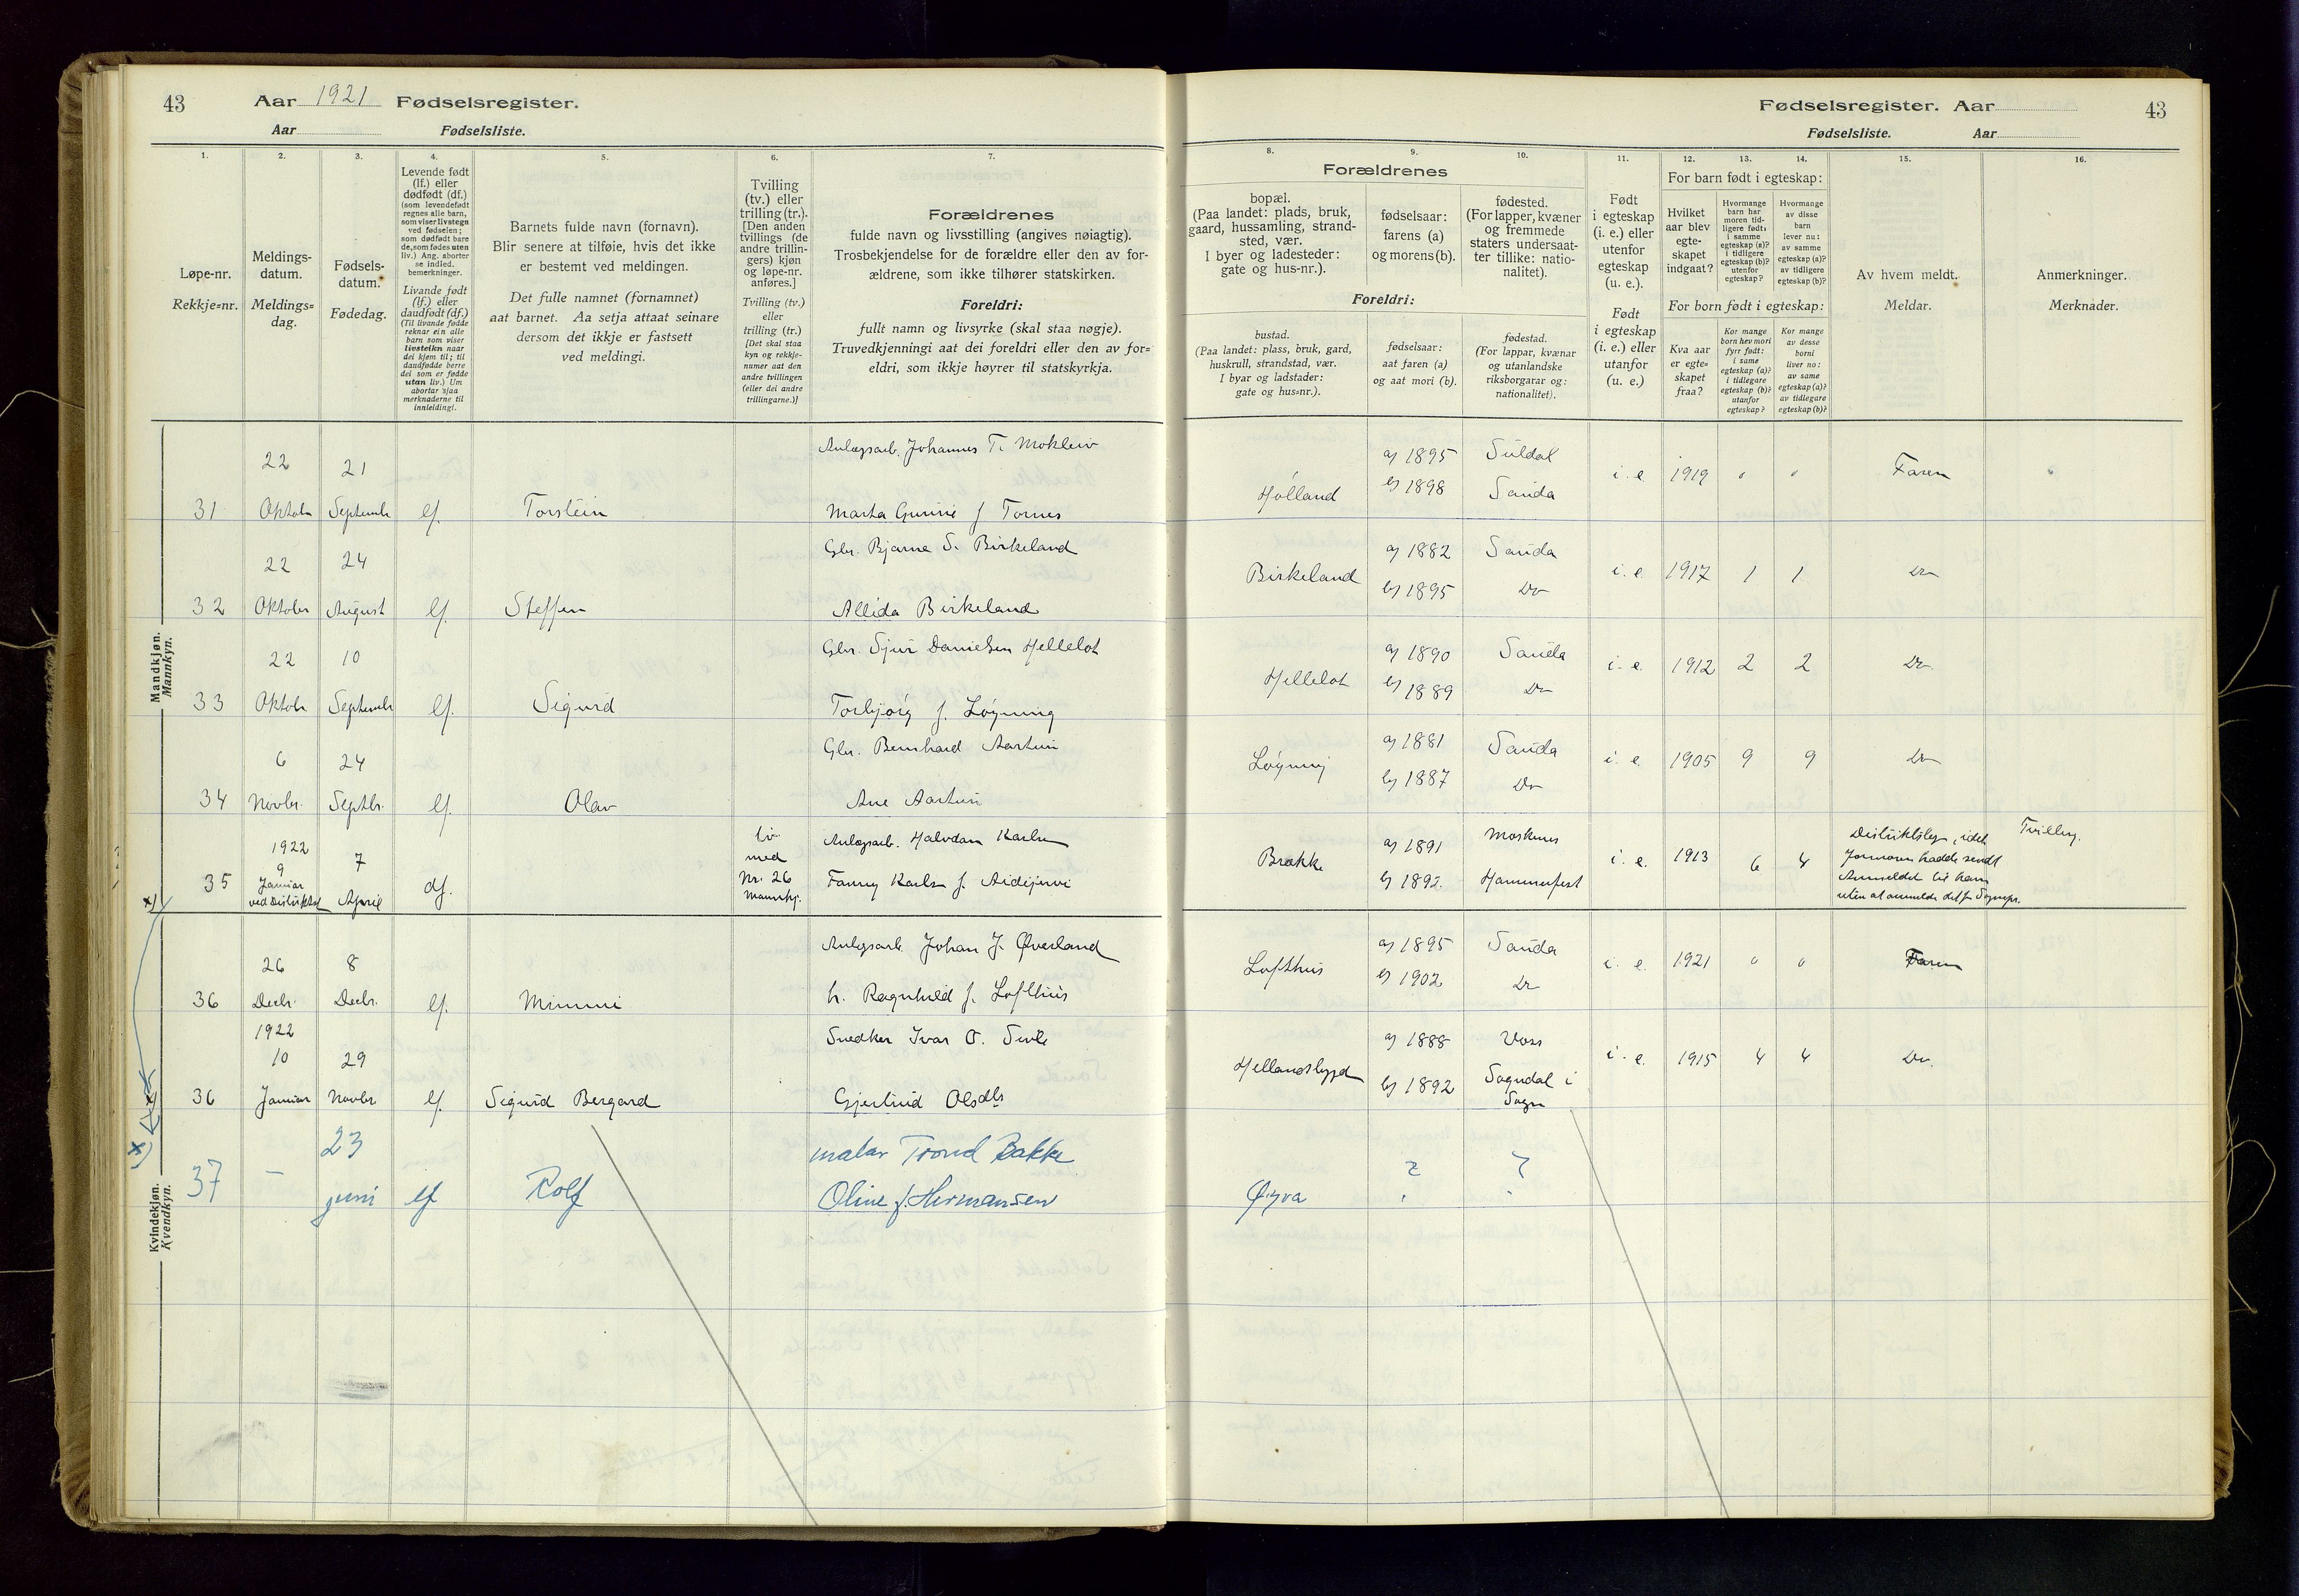 43 Aar 1921 Fødselsregister.
Aar Fødselsliste.
Fødselsregister. Aar 43
Fødselsliste. Aar
1.
Løpe-nr.
Rekkje=nr.
2.
Meldings-
datum.
Meldings=
dag.
3.
Fødsels-
datum.
Fødedag.
4.
Levende født
(lf.) eller
dødfødt (df.)
(som levendefødt
regnes alle barn,
som viser livstegn
ved fødselen;
som dødfødt bare
de, som fødes uten
liv.) Ang. aborter
se indled.
bemerkninger.
Livande født
(lf.) eller
daudfødt (df.)
(Til livande fødde
reknar ein alle
barn som viser
livsteikn naar
dei kjem til; til
daudfødde berre
dei som er fødde
utan liv.) Um
abortar sjaa
merknaderne til
innleidingi.
5.
Barnets fulde navn (fornavn).
Blir senere at tilføie, hvis det ikke
er bestemt ved meldingen.
Det fulle namnet (fornamnet)
aat barnet. Aa setja attaat seinare
dersom det ikkje er fastsett
ved meldingi.
6.
Tvilling
(tv.) eller
trilling (tr.).
[Den anden
tvillings (de
andre trillin-
gers) kjøn
og løpe-nr.
anføres.]
Tvilling (tv.)
eller
trilling (tr.)
[Det skal staa
kyn og rekkje-
numer aat den
andre tvillingen
(eller dei andre
trillingarne.)]
7.
Forældrenes
fulde navn og livsstilling (angives nøiagtig).
Trosbekjendelse for de forældre eller den av for-
ældrene, som ikke tilhører statskirken.
Foreldri:
fullt namn og livsyrke (skal staa nøgje).
Truvedkjenningi aat dei foreldri eller den av for=
eldri, som ikkje høyrer til statskyrkja.
Forældrenes
8.
bopæl.
(Paa landet: plads, bruk,
gaard, hussamling, strand-
sted, vær.
I byer og ladesteder:
gate og hus-nr.).
9.
fødselsaar:
farens (a)
og morens (b).
10.
fødested.
(For lapper, kvæner
og fremmede
staters undersaat-
ter tillike: natio-
nalitet).
Foreldri:
bustad.
(Paa landet: plass, bruk, gard,
huskrull, strandstad, vær.
I byar og ladstader:
gate og hus=nr.).
fødselsaar:
aat faren (a)
og aat mori (b).
fødestad.
(For lappar, kvænar
og utanlandske
riksborgarar og:
nationalitet).
11.
Født
i egteskap
(i. e.) eller
utenfor
egteskap
(u. e.).
Født
i egteskap
(i. e.) eller
utanfor
(u. e.)
For barn født i egteskap:
12.
Hvilket
aar blev
egte-
skapet
indgaat?
13.
Hvormange
barn har
moren tid-
ligere født:
i samme
egteskap (a)?
i tidligere
egteskap (b)?
utenfor
egteskap?
14.
Hvormange
av disse
barn
lever nu:
av samme
egteskap (a)?
av tidligere
egteskap (b)?
For born født i egteskap:
Kva aar
er egte-
skapet
fraa?
Kor mange
born hev mori
fyrr født:
i same
egteskap (a)?
i tidlegare
egteskap (b)?
utanfor
egteskap?
Kor mange
av desse
borni
liver no:
av same
egteskap (a)?
av tidlegare
egteskap (b)?
15.
Av hvem meldt.
Meldar.
16.
Anmerkninger.
Merknader.
Mandkjøn.
Mannkyn.
31 22 Oktobr 21 Septembr lf. Torstein
Anlægsarb. Johannes T. Mokleiv
Marta Gurine f Tornes
Hølland a) 1895 Suldal i. e. 1919 0 0 Faren
b) 1898 Sauda
32 22 Oktober 24 August lf. Steffen
Gbr. Bjarne S. Birkeland
Allida Birkeland
Birkeland a) 1882 Sauda i. e. 1917 1 1 Do
b) 1895 Do
33 22 Oktobr 10 Septembr lf. Sigurd
Gbr. Sjur Danielsen Hellelot
Torbjørg f. Løyning
Hellelot a) 1890 Sauda i. e. 1912 2 2 Do
b) 1889 Do
34 6 Novbr. 24 Septbr. lf. Olav
Gbr. Bernhard Aartun
Ane Aartun
Løyning a) 1881 Sauda i. e. 1905 9 9 Do
b) 1887 Do
35 1922 9 Januar ved Distriktsl 7 April df.
tv. med Nr. 26 Mannkj.
Anlægsarb. Halvdan Karlsen
Fanny Karlsen f. Aidijervi
Brakke a) 1891 Moskenes i. e. 1913 6 4
b) 1892. Hammerfest
Distriktslægen, idet
Jormoren hadde sendt
Anmeldel til ham
uten at anmelde det for Sognepr.
Tvilling.
x)
36 26 Decbr. 8 Decbr. lf. Mimmi
Anlegsarb. Johan J. Øverland
h. Ragnhild f. Lofthus
Lofthus a) 1895 Sauda i. e. 1921 0 0 Faren
b) 1902 Do
36 1922 10 Januar 29 Novbr lf. Sigurd Bergard
Snedker Ivar O. Seile
Gjertrud Olsdtr
Hellandsbygd a) 1888 Voss i. e. 1915 4 4 Do.
b) 1892 Sogndal i
Sogn
x)
37 – 23 juni lf Rolf
malar Trond Bakke
Oline f. Hermansen
Øyra ? ?
Kvindekjøn.
Kvendkyn.